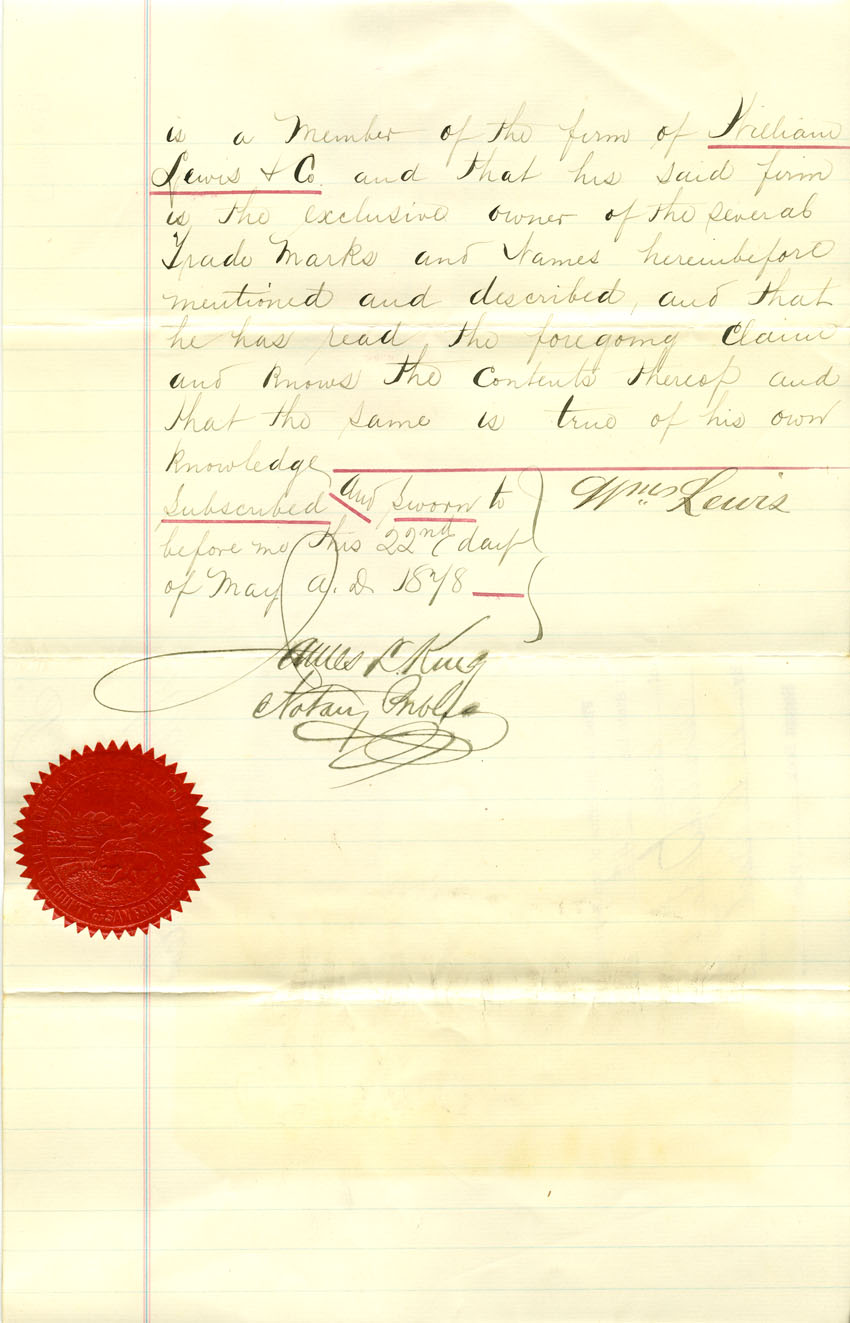 is a Member of the firm of William
Lewis & Co. and that his said firm
is the exclusive owner of the several
Trade Marks and Names hereinbefore
mentioned and described, and that
he has read the foregoing Claim
and knows the Contents thereof and
that the same is true of his own
knowledge
Subscribed and Sworn to
before me this 22nd day
of May A.D. 1878
Wm Lewis
James L. King
Notary Public
COUNTY OF SAN FRANCISCO